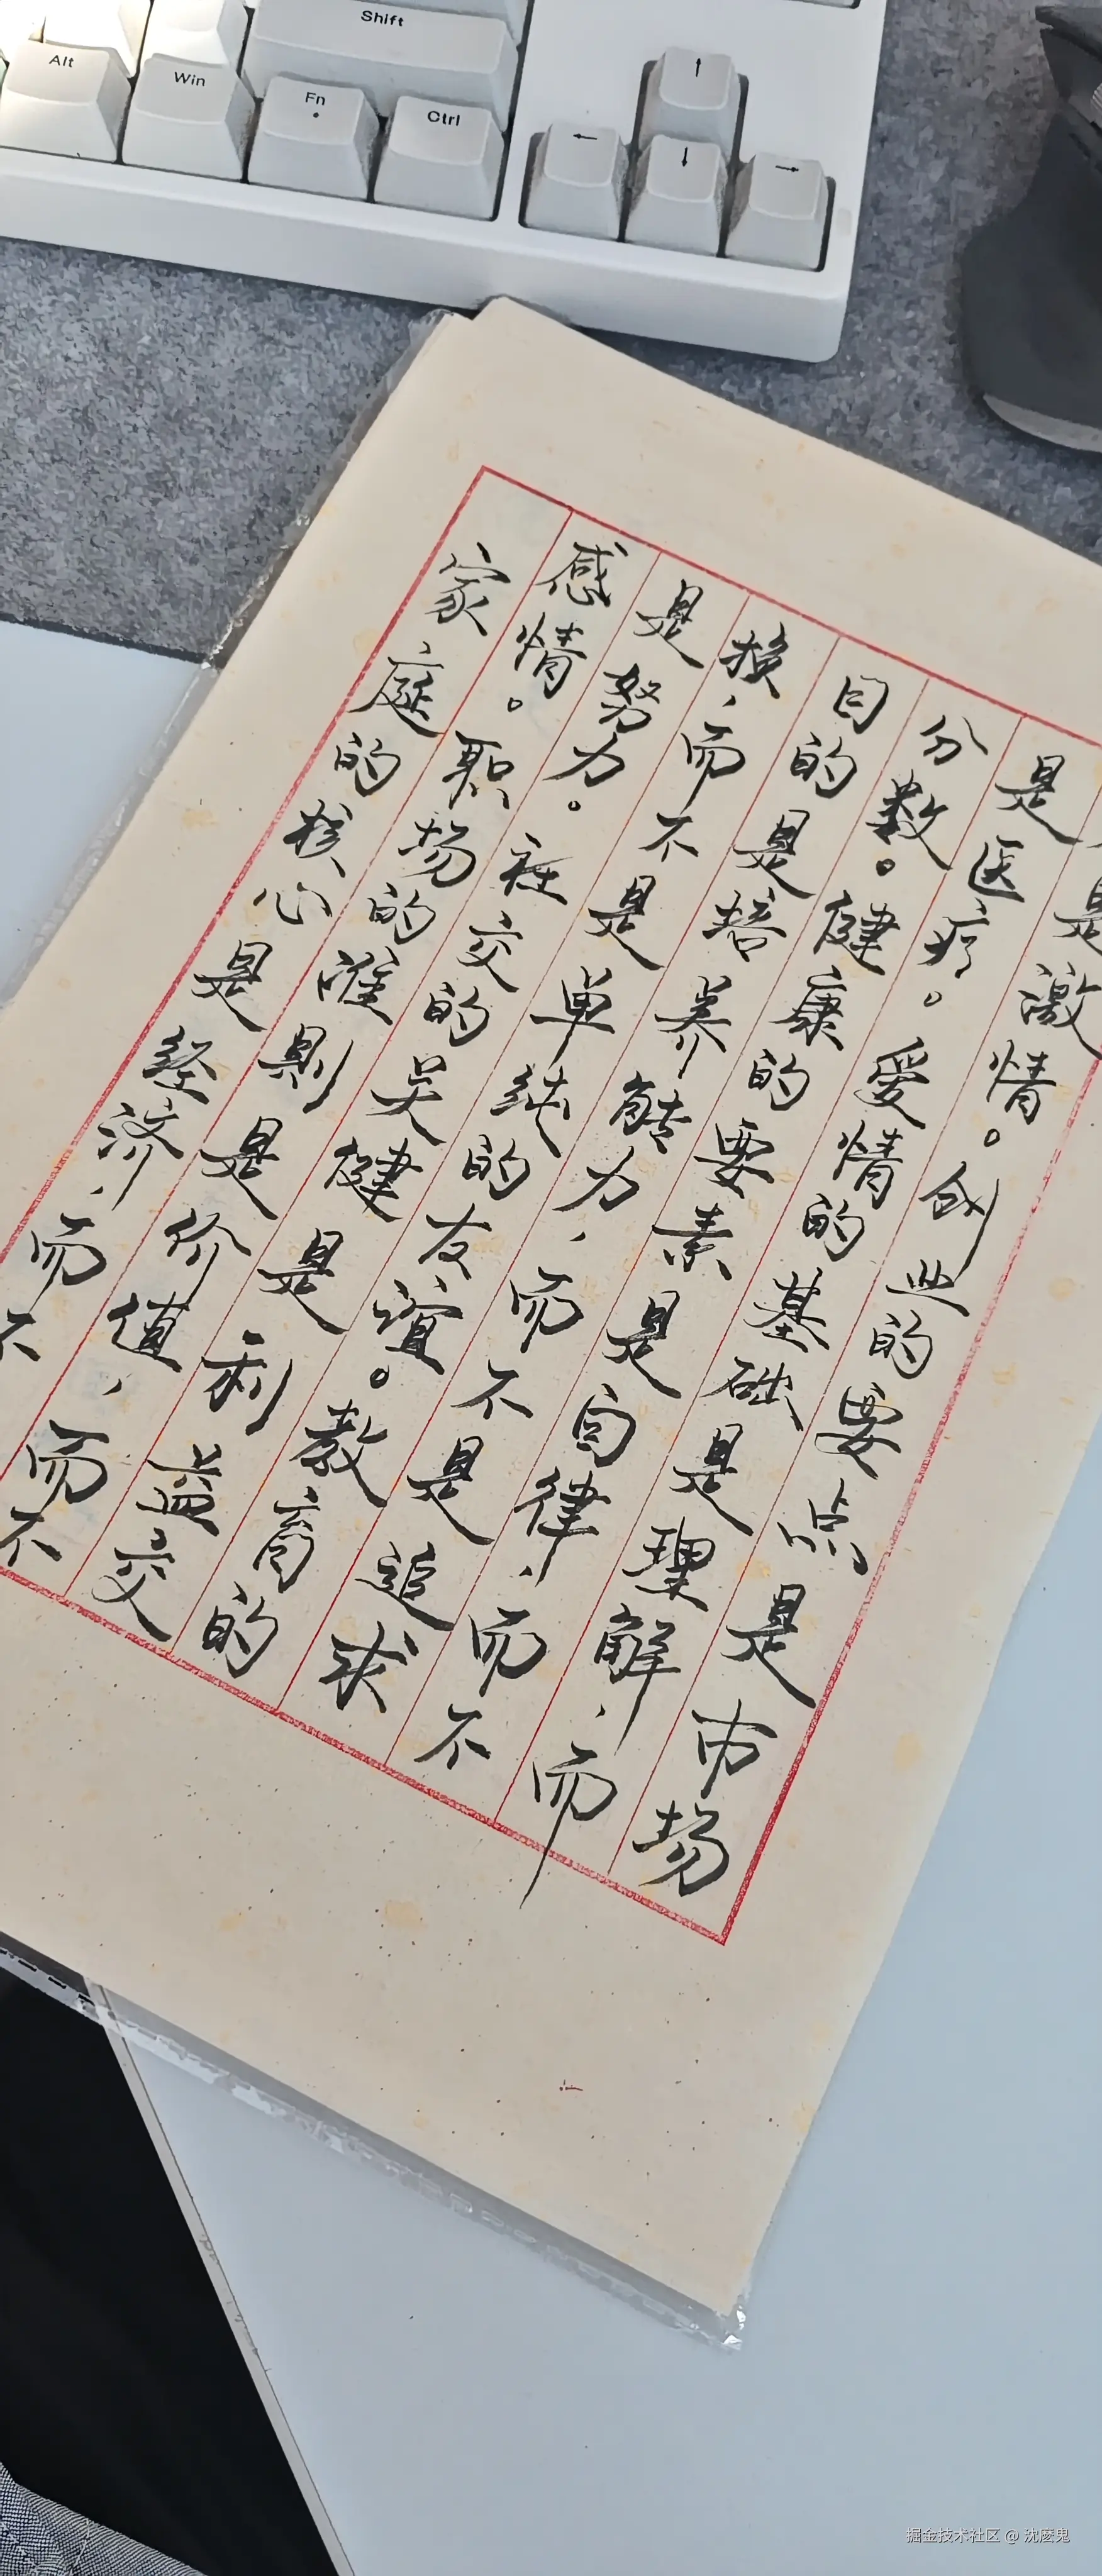 Shift
Alt Win Fn Ctrl
↑
← ↓ →
家庭的核心是经济,而不
感情。职场的准则是价值,而不
是努力。社交的关健是利益交
换,而不是单纯的友谊。教育的
目的是培养能力,而不是追求
分数。健康的要素是自律,而不
是医疗。爱情的基础是理解,而
是激情。创业的要点是市场
掘金技术社区 @ 沈麽鬼